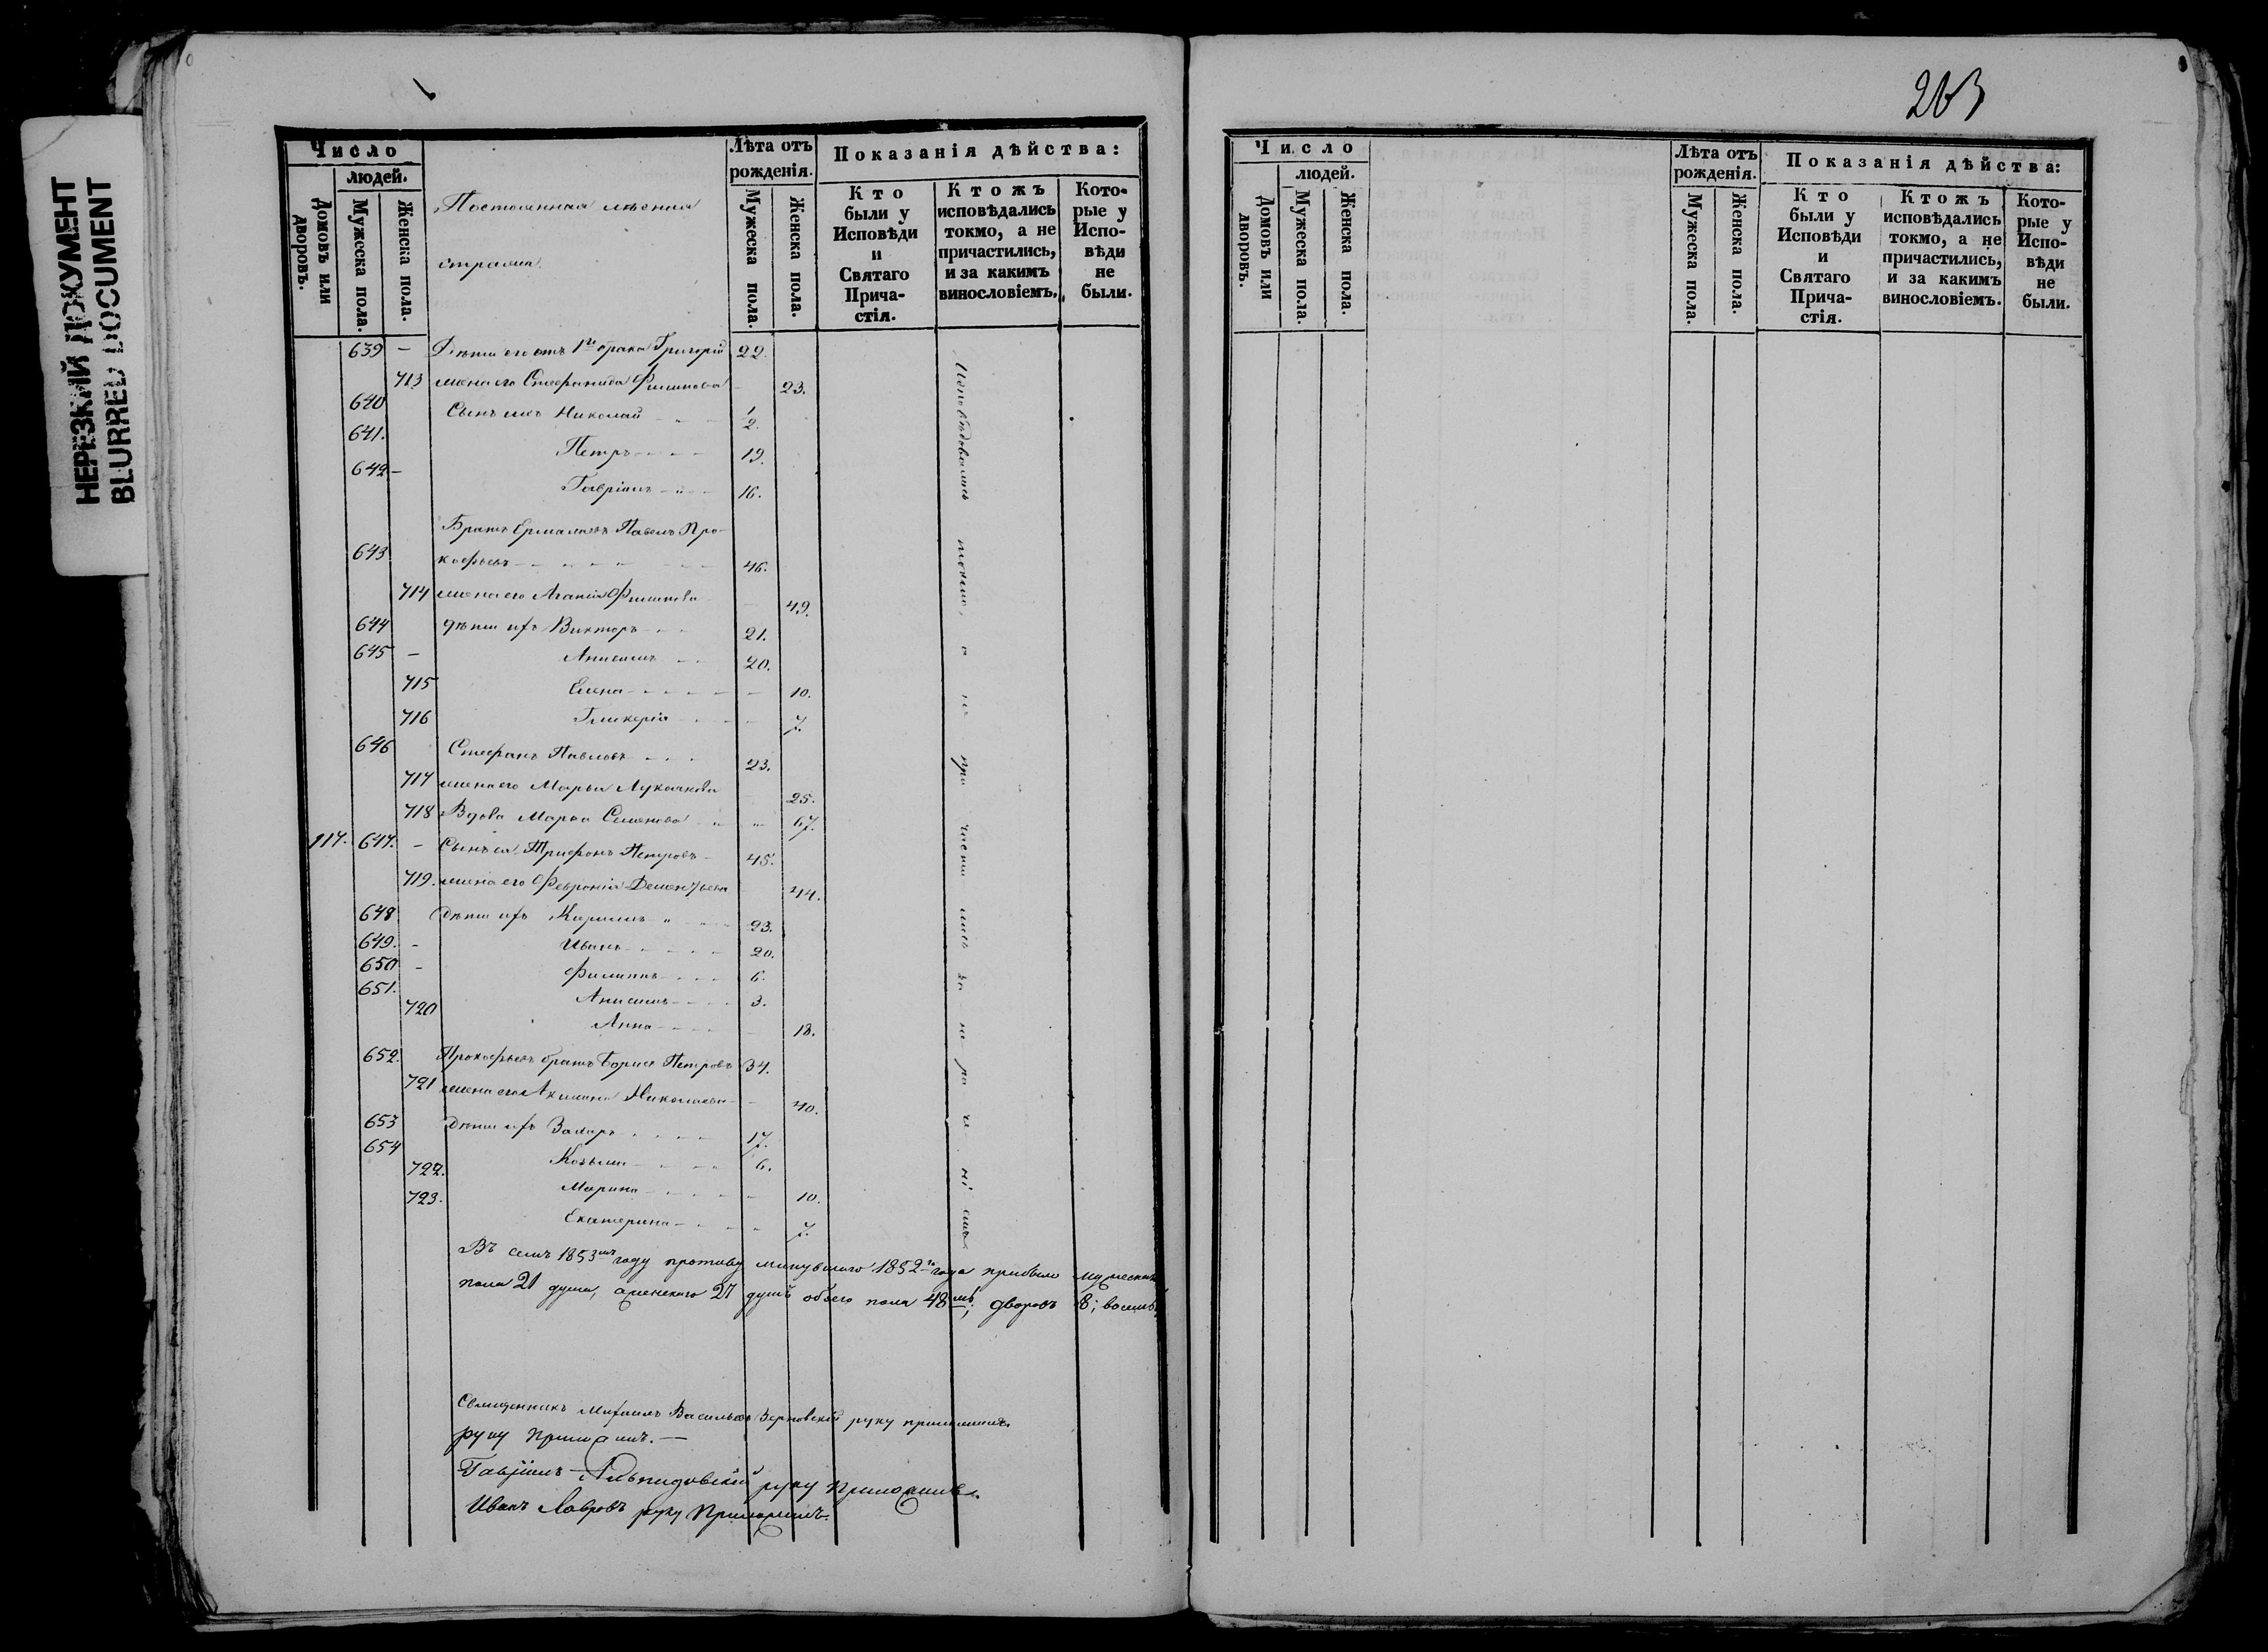 НЕРЕЗКИЙ ДОКУМЕНТ
BLURRED DOCUMENT
Число
людей.
Домовъ или дворовъ.
Мужеска пола.
Женска пола.
Лѣта отъ рожденія.
Мужеска пола.
Женска пола.
Показанія дѣйства:
Кто были у Исповѣди и Святаго Прича-стія.
Ктожъ исповѣдались токмо, а не причастились, и за какимъ винословіемъ.
Кото-рые у Испо-вѣди не были.
639 — Дѣти его отъ 1го брака Григорій 22.
713 жена его Стефанида Филипова 23.
640 Сынъ ихъ Николай 1/2.
641. Петръ 19.
642 — Гавріилъ 16.
Братъ Ермаловъ Павелъ Про-
643 кофьевъ 46.
714 жена его Агапія Филипова 49.
644 дѣти ихъ Викторъ 21.
645 — Анисимъ 20.
715 Елена 10.
716 Гликерія 7.
646 Стефанъ Павловъ 23.
717 жена его Марья 25.
718 Вдова Марѳа Семенова 67.
117. 647. — Сынъ ея Трифонъ Петровъ 45.
719. жена его Февронія Дементьева 44.
648 Дѣти ихъ Кирилъ 23.
649. — Иванъ 20.
650 — Филиппъ 6.
651. Анисимъ 3.
720 Анна 18.
652. Прокофьевъ братъ Борисъ Петровъ 34.
721 жена его Акилина Николаева 40.
653 Дѣти ихъ Захаръ 17.
654 Козьма 6.
722. Марина 10.
723. Екатерина 7.
Исповѣдовались токмо, а не причастились за нераченіемъ
Въ семъ 1853мъ году противу минувшаго 1852го года прибыло мужеска
пола 21 душа, женскаго 27 душъ обоего пола 48мь; дворовъ 8; восемь.
Священникъ Михаилъ Васильевъ руку приложилъ.
руку приложилъ. —
Гавріилъ руку приложилъ.
Иванъ Лавровъ руку приложилъ.
263
Число
людей.
Домовъ или дворовъ.
Мужеска пола.
Женска пола.
Лѣта отъ рожденія.
Мужеска пола.
Женска пола.
Показанія дѣйства:
Кто были у Исповѣди и Святаго Прича-стія.
Ктожъ исповѣдались токмо, а не причастились, и за какимъ винословіемъ.
Кото-рые у Испо-вѣди не были.